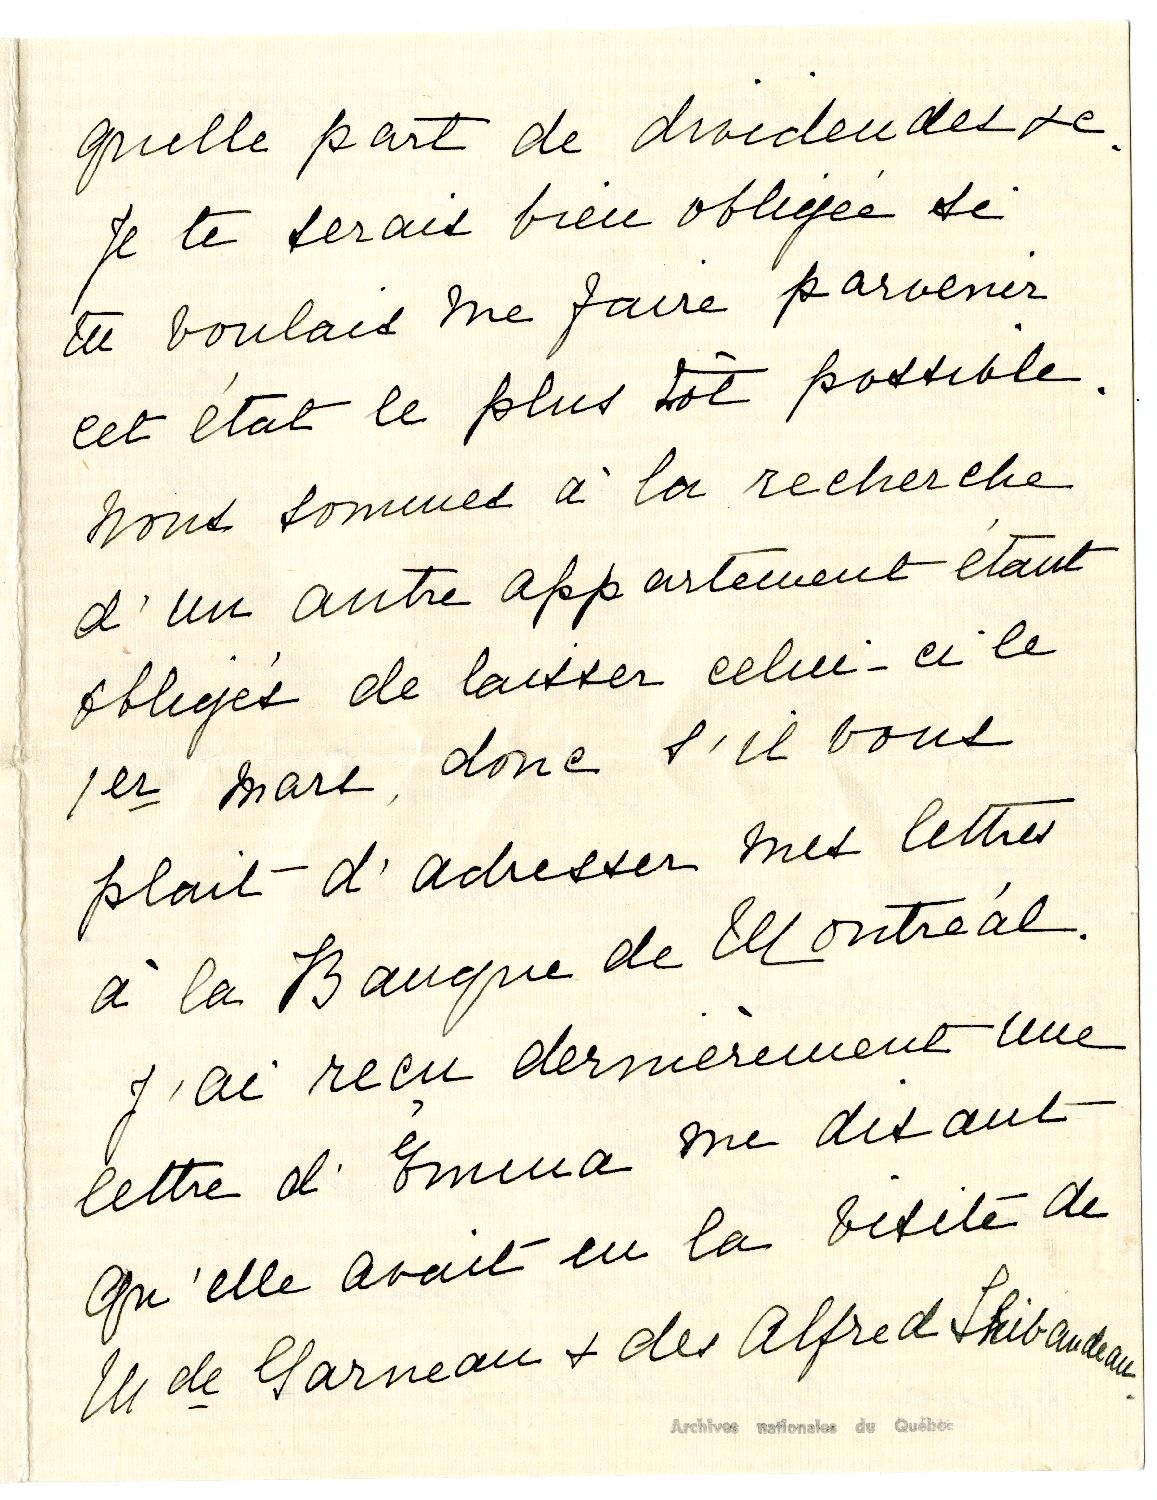 quelle part de dividendes &c.
Je te serais bien obligée si
tu voulais me faire parvenir
cet état le plus tôt possible.
Nous sommes à la recherche
d'un autre appartement étant
obligés de laisser celui-ci le
1er mars, donc s'il vous
plait d'adresser mes lettres
à la Banque de Montréal.
J'ai reçu dernièrement une
lettre d'Emma me disant
qu'elle avait eu la visite de
Mde Garneau & des Alfred Thibaudeau.
Archives nationales du Québec